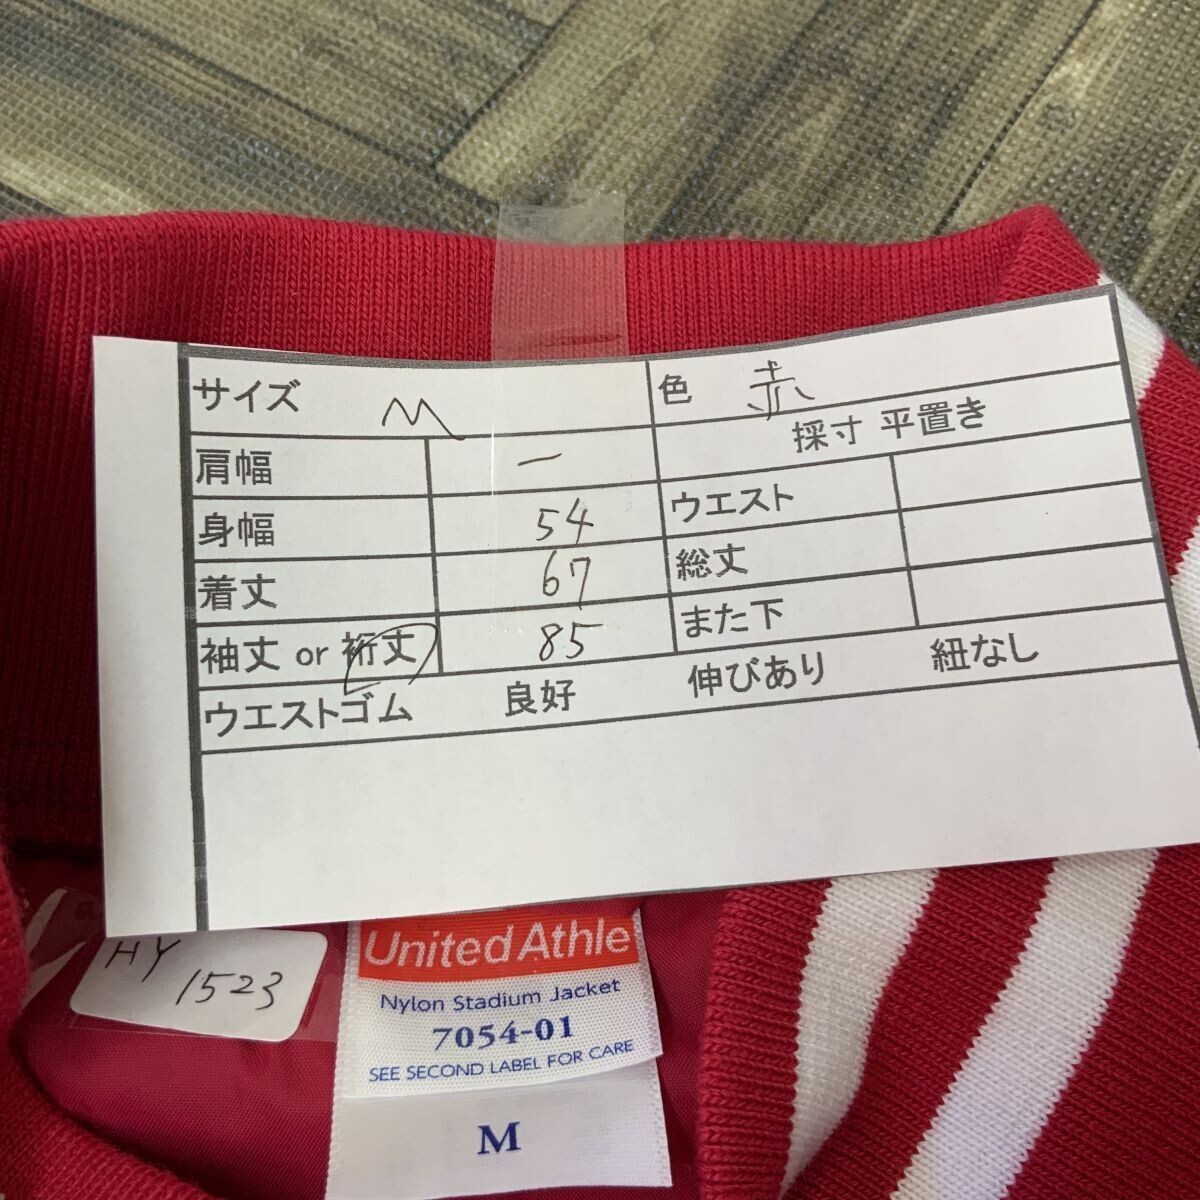 サイズ M 色 赤
肩幅 ー 採寸 平置き
身幅 54 ウエスト
着丈 67 総丈
袖丈 or 裄丈 85 また下
ウエストゴム 良好 伸びあり 紐なし
HY
1523
United Athle
Nylon Stadium Jacket
7054-01
SEE SECOND LABEL FOR CARE
M